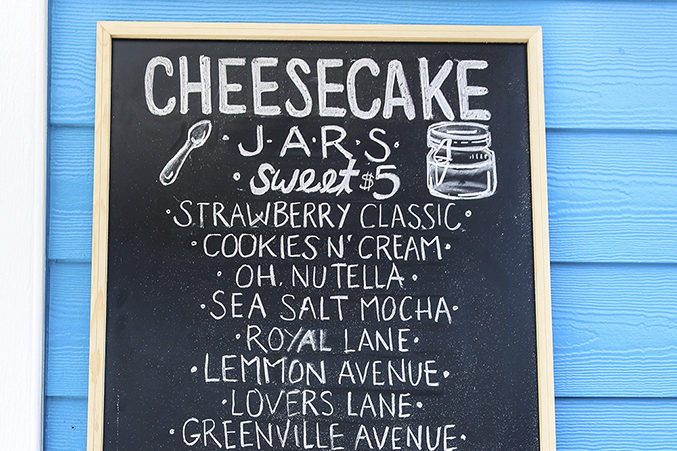 CHEESECAKE
·J·A·R·S·
·Sweet $5
·STRAWBERRY CLASSIC·
·COOKIES N' CREAM·
·OH, NUTELLA·
·SEA SALT MOCHA·
·ROYAL LANE·
·LEMMON AVENUE·
·LOVERS LANE·
·GREENVILLE AVENUE·